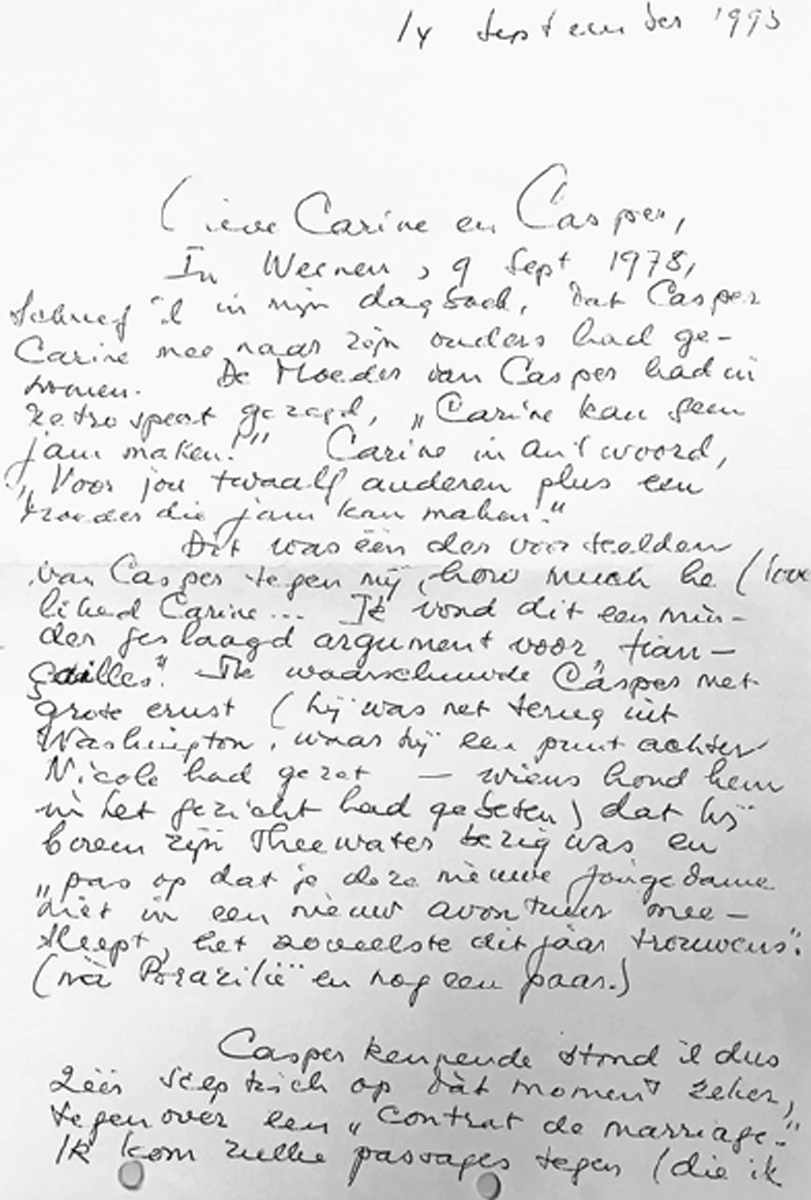 14 september 1993
Lieve Carine en Casper,
In Weenen, 9 Sept 1978,
schreef ik in mijn dagboek, dat Casper
Carine mee naar zijn ouders had ge-
nomen. De Moeder van Casper had in
retrospect gezegd, „Carine kan geen
jam maken!" Carine in antwoord,
„Voor jou twaalf anderen plus een
moeder die jam kan maken!"
Dit was één der voorbeelden
van Casper tegen mij, how much he (love
liked Carine... Ik vond dit een min-
der geslaagd argument voor „fian-
çailles". Ik waarschuwde Casper met
grote ernst (hij was net terug uit
Washington, waar hij een punt achter
Nicole had gezet — wiens hond hem
in het gezicht had gebeten) dat hij
boven zijn Theewater bezig was en
„pas op dat je deze nieuwe jongedame
niet in een nieuw avontuur mee-
sleept, het zoveelste dit jaar trouwens".
(nà Brazilië en nog een paar.)
Casper kennende stond ik dus
zéér sceptisch op dàt moment zeker,
tegenover een „contrat de marriage."
Ik kom zulke passages tegen (die ik